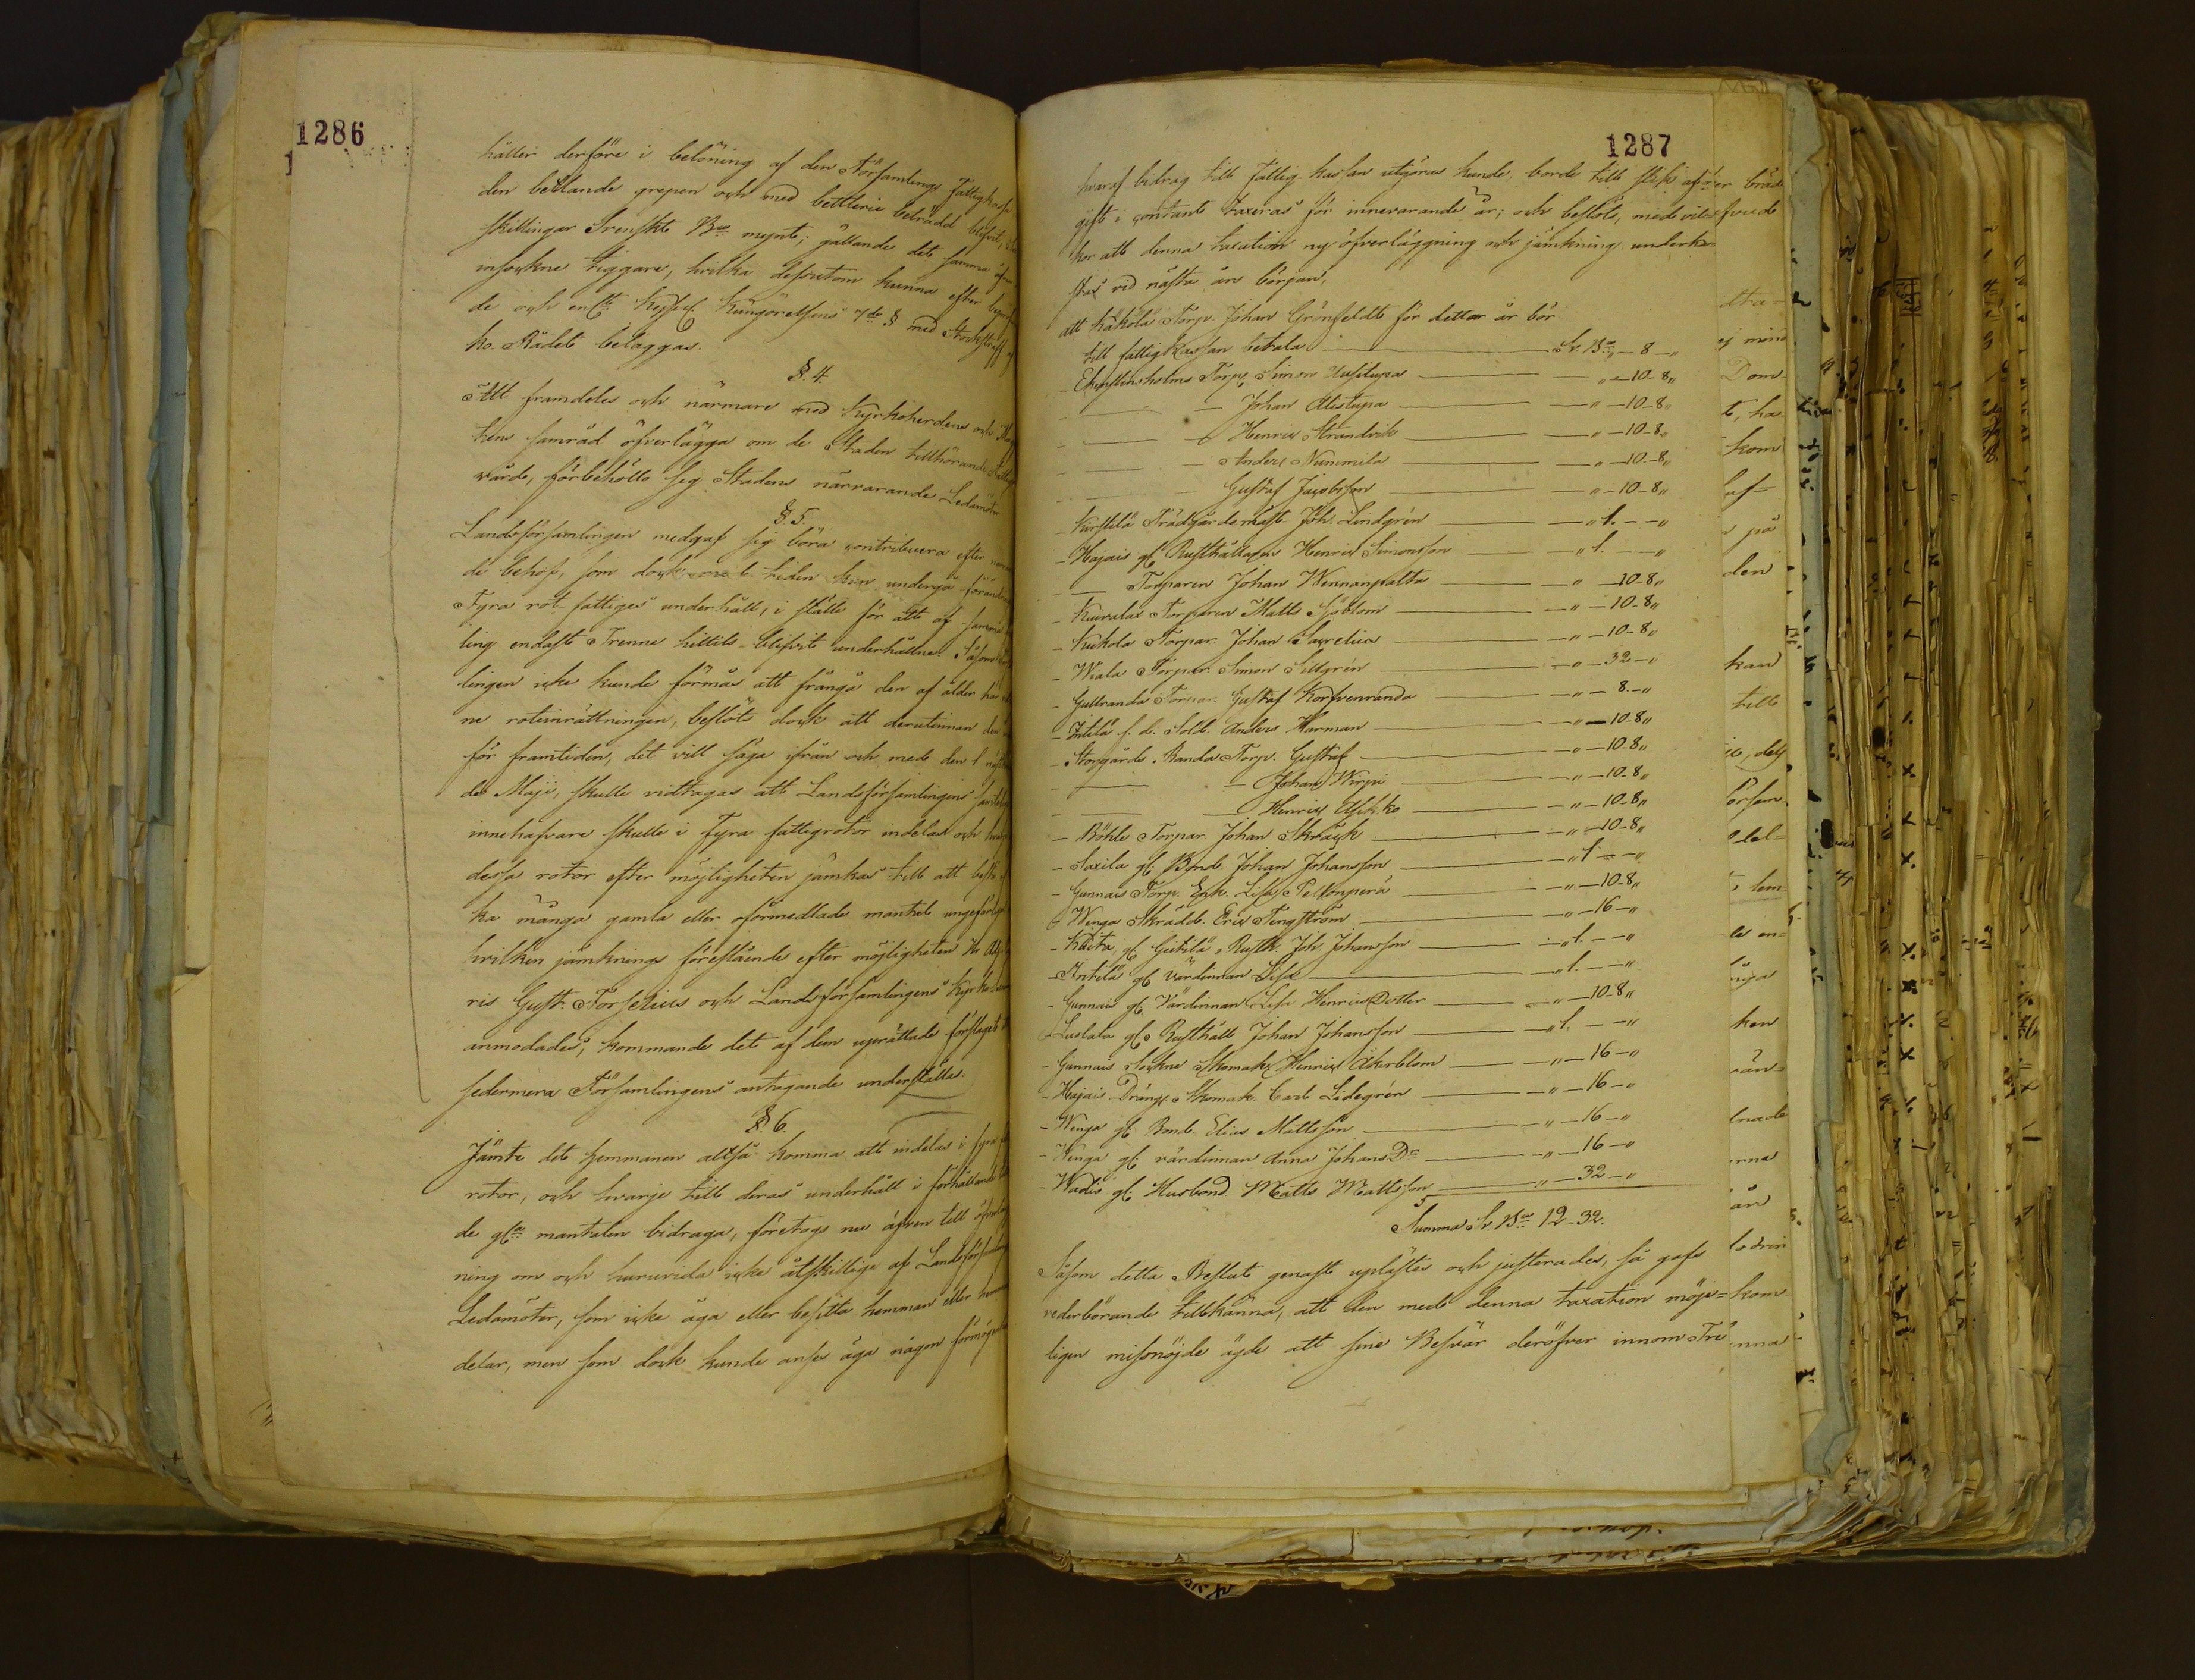 1286
håller derföre i belöning af den Församlings Fattigkassa
den betlande grepen och med bettlerie beträdd blifvit,
skillingar Svenskt Bco mynt; gällande det samma äfven
insockne tiggare, hvilka dessutom kunna efter
de och enlt Kejserl. Kungörelsens 7de § med Stockstraff af
ko-Rådet beläggas.
§. 4.
Att framdeles och närmare med Kyrkoherdens och
tens samråd öfverlägga om de Staden tillhörande Fattigas
vård, förbehöllo sig Stadens närvarande Ledamöter
§ 5.
Landsförsamlingen medgaf sig böra contribuera efter
de behof, som dock med tiden kan undergå förändring
Fyra rot-fattiges underhåll, i stället för att af samma
ling endast Trenne hittils blifvit underhållne. Såsom
lingen icke kunde förmås att frångå den af ålder här
ne roteinrättningen, beslöts dock att derutinnan den
för framtiden, det vill säga ifrån och med den 1 näst
de Maji, skulle vidtagas att Landsförsamlingens samtelige
innehafvare skulle i Fyra fattigrotor indelas och
dessa rotor efter möjligheten jämkas till att bestå af
ka många gamla eller oförmedlade mantal ungefärligen
hvilken jämknings föreslående efter möjligheten Hr
ris Gust. Forselius och Landsförsamlingens Kyrko-
anmodades, kommande det af dem uprättade förslaget
sedermera Församlingens antagande underställas.
§. 6.
Jämte det hemmanen altså komma att indelas i fyra
rotor, och hvarje till deras underhåll i förhållande till
de gla mantalen bidraga, företogs nu äfven till öfverlägg
ning om och huruvida icke åtskillige af Landsförsamlings
Ledamöter, som icke äga eller besitta hemman eller hemmans
delar, men som dock kunde anses äga någon förmögenhet
1287
hvaraf bidrag till fattig-kassan utgöras kunde, borde till slik af-
gift i contant taxeras för innevarande år; och beslöts, med vil-
kor att denna taxation ny öfverläggning och jämkning underka-
stas vid nästa års början,
att Käkölä Torp. Johan Grönfeldt för detta år bör
till fattigkassan betala Sv. Bco „ — 8 — „
- Ehrstensholms Torp. Simon Uusitupa „ — 10-8 „
— — Johan Alistupa „ — 10-8 „
— — Henric Strandvik „ — 10-8 „
— — Anders Nummila „ — 10-8 „
— — Gustaf Jacobsson „ — 10-8 „
- Kirstilä Trädgårdsmäst. Joh. Lindgrén „ 1. — — „
- Hajais gl. Rusthållaren Henric Simonsson „ 1. — — „
— Torparen Johan Wennanpalta „ — 10-8 „
- Kuvalas Torparen Matts Sjöblom „ — 10-8 „
- Kukola Torpar. Johan Saxelin „ — 10-8 „
- Wiala Torpar. Simon Sillgrén „ — 32 — „
- Gullranda Torpar. Gustaf Korfvenranda „ — 8. — „
- Inkilä f.d. Sold. Anders Harman „ — 10-8 „
- Storgårds Randa Torp. Gustaf „ — 10-8 „
— — Johan Wirpi „ — 10-8 „
— — Henric „ — 10-8 „
- Böhle Torpar. Johan Skräck „ — 10-8 „
- Saxila gl. Bond. Johan Johansson „ 1 — — „
- Gunnais Torp. Enk. Lisa Peltonperä „ — 10-8 „
- Wenga Skrädd. Eric Tengström „ — 16 — „
- gl. Geitilä Rusth. Joh. Johansson „ 1. — — „
- Inkilä gl. värdinnan Lisa „ 1. — — „
- Gunnais gl. Värdinnan Lisa Henrics Dotter „ — 10-8 „
- Luolala gl. Rusthåll. Johan Johansson „ 1. — — „
- Gunnais Sockne Skomak. Henric Åkerblom „ — 16 — „
- Hajais Dräng Skomak. Carl Lidegrén „ — 16 — „
- Wenga gl. Bond. Elias Mattsson „ — 16 — „
- Wenga gl. värdinnan Anna Johans Dr „ — 16 — „
- Wadis gl. Husbond. Matts Mattsson „ — 32 — „
Summa Sv. Bco 12-32.
Såsom detta Beslut genast uplästes och justerades, så gafs
vederbörande tillkänna, att den med denna taxation möje-
ligen missnöjde ägde att sine Besvär deröfver innom Tre